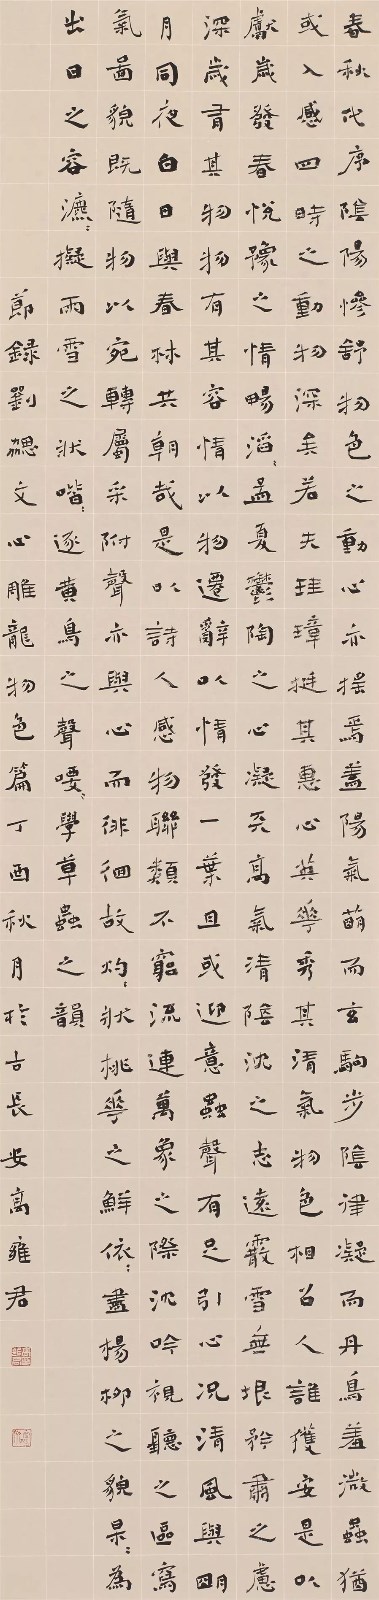 春秋代序陰陽慘舒物色之動心亦搖焉蓋陽氣萌而玄駒步陰律凝而丹鳥羞微蟲猶
或入感四時之動物深矣若夫珪璋挺其惠心英華秀其清氣物色相召人誰獲安是以
獻歲發春悅豫之情暢滔〻孟夏鬱陶之心凝天高氣清陰沈之志遠霰雪無垠矜肅之慮
深歲有其物物有其容情以物遷辭以情發一葉且或迎意蟲聲有足引心況清風與明
月同夜白日與春林共朝哉是以詩人感物聯類不窮流連萬象之際沈吟視聽之區寫
氣啚貌既隨物以宛轉屬采附聲亦與心而徘徊故灼〻狀桃華之鮮依〻盡楊柳之貌杲〻為
出日之容瀌〻擬雨雪之狀喈〻逐黃鳥之聲喓〻學草蟲之韻
節錄劉勰文心雕龍物色篇丁酉秋月於古長安高雍君